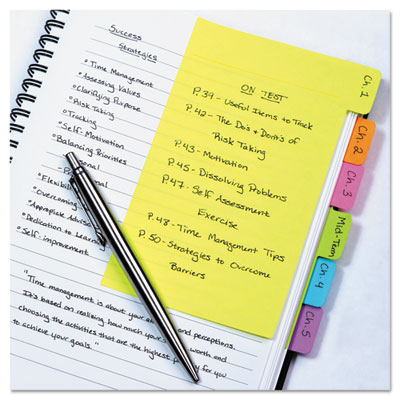 Success
Strategies
Time Management
Assessing Values
Clarifying Purpose
Risk Taking
Tracking
Self-Motivation
Balancing Priorities
Personal
Flexibility
Overcoming
Appropriate Advis
Dedication to Learn
Self-improvement
"Time management is about your and perceptions.
It's based on realizing how much your worth and
choosing the activities that are the highest for you
to achieve your goals."
ON TEST
P. 39 - Useful Items to Track
P. 42 - The Do's & Dont's of
Risk Taking
P. 43 - Motivation
P. 45 - Dissolving Problems
P. 47 - Self Assessment
Exercise
P. 48 - Time Management Tips
P. 50 - Strategies to Overcome
Barriers
Ch. 1
Ch. 2
Ch. 3
Mid-Term
Ch. 4
Ch. 5